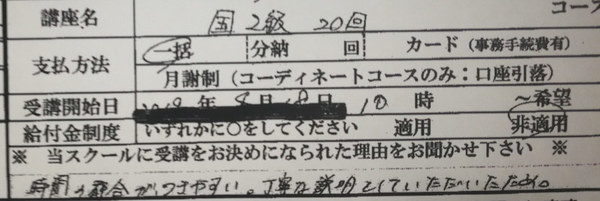 講座名 国 2級 20回 コース
支払方法 一括 分納 回 カード（事務手続費有）
月謝制（コーディネートコースのみ：口座引落）
受講開始日 年 月 日 10 時 ～希望
給付金制度 いずれかに○をしてください 適用 非適用
※ 当スクールに受講をお決めになられた理由をお聞かせ下さい ※
時間の融合がつきやすい。丁寧な説明をしていただいたため。